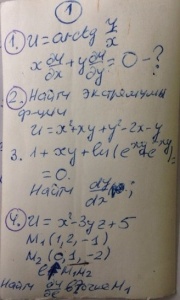 1
1. U = arctg y/x
x ∂U/∂x + y ∂U/∂y = 0 - ?
2. Найти экстремумы
ф-ции
u = x²+xy+y²-2x-y
3. 1 + xy + ln(e^xy + e^-xy) =
= 0.
Найти dy/dx;
4. U = x² - 3yz + 5
M₁(1, 2, -1)
M₂(0, 1, -2)
M₁M₂
Найти ∂U/∂e в точке M₁